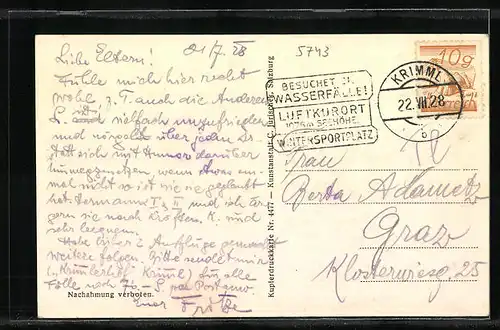 21/7. 28
5743
Liebe Eltern!
Fühle mich hier recht
wohl, z. T. auch die Anderen
vielfach unzufrieden
und nörgeln über jeden
statt sich mit Humor darüber
hinwegzusetzen, wenn etwas
mal nicht so ist wie sie geglaubt
hat. Hermann I & II und ich
gern sie nach K. und
sehr
Habe bisher 2 Ausflüge gemacht
weitere folgen. Bitte sendet mir
("Krimlerhof" Kriml) für alle
Fälle noch 70.- S per Postanw.
Euer Fritze
Nachahmung verboten.
Kupferdruckkarte Nr. 4477 – Kunstanstalt C. Jurischek, Salzburg
BESUCHET D.
WASSERFÄLLE!
LUFTKURORT
1076 m SEEHÖHE
WINTERSPORTPLATZ
KRIMML
22.VII.28
b
10g
Frau
Berta Adametz
Graz
Klosterwiesg. 25